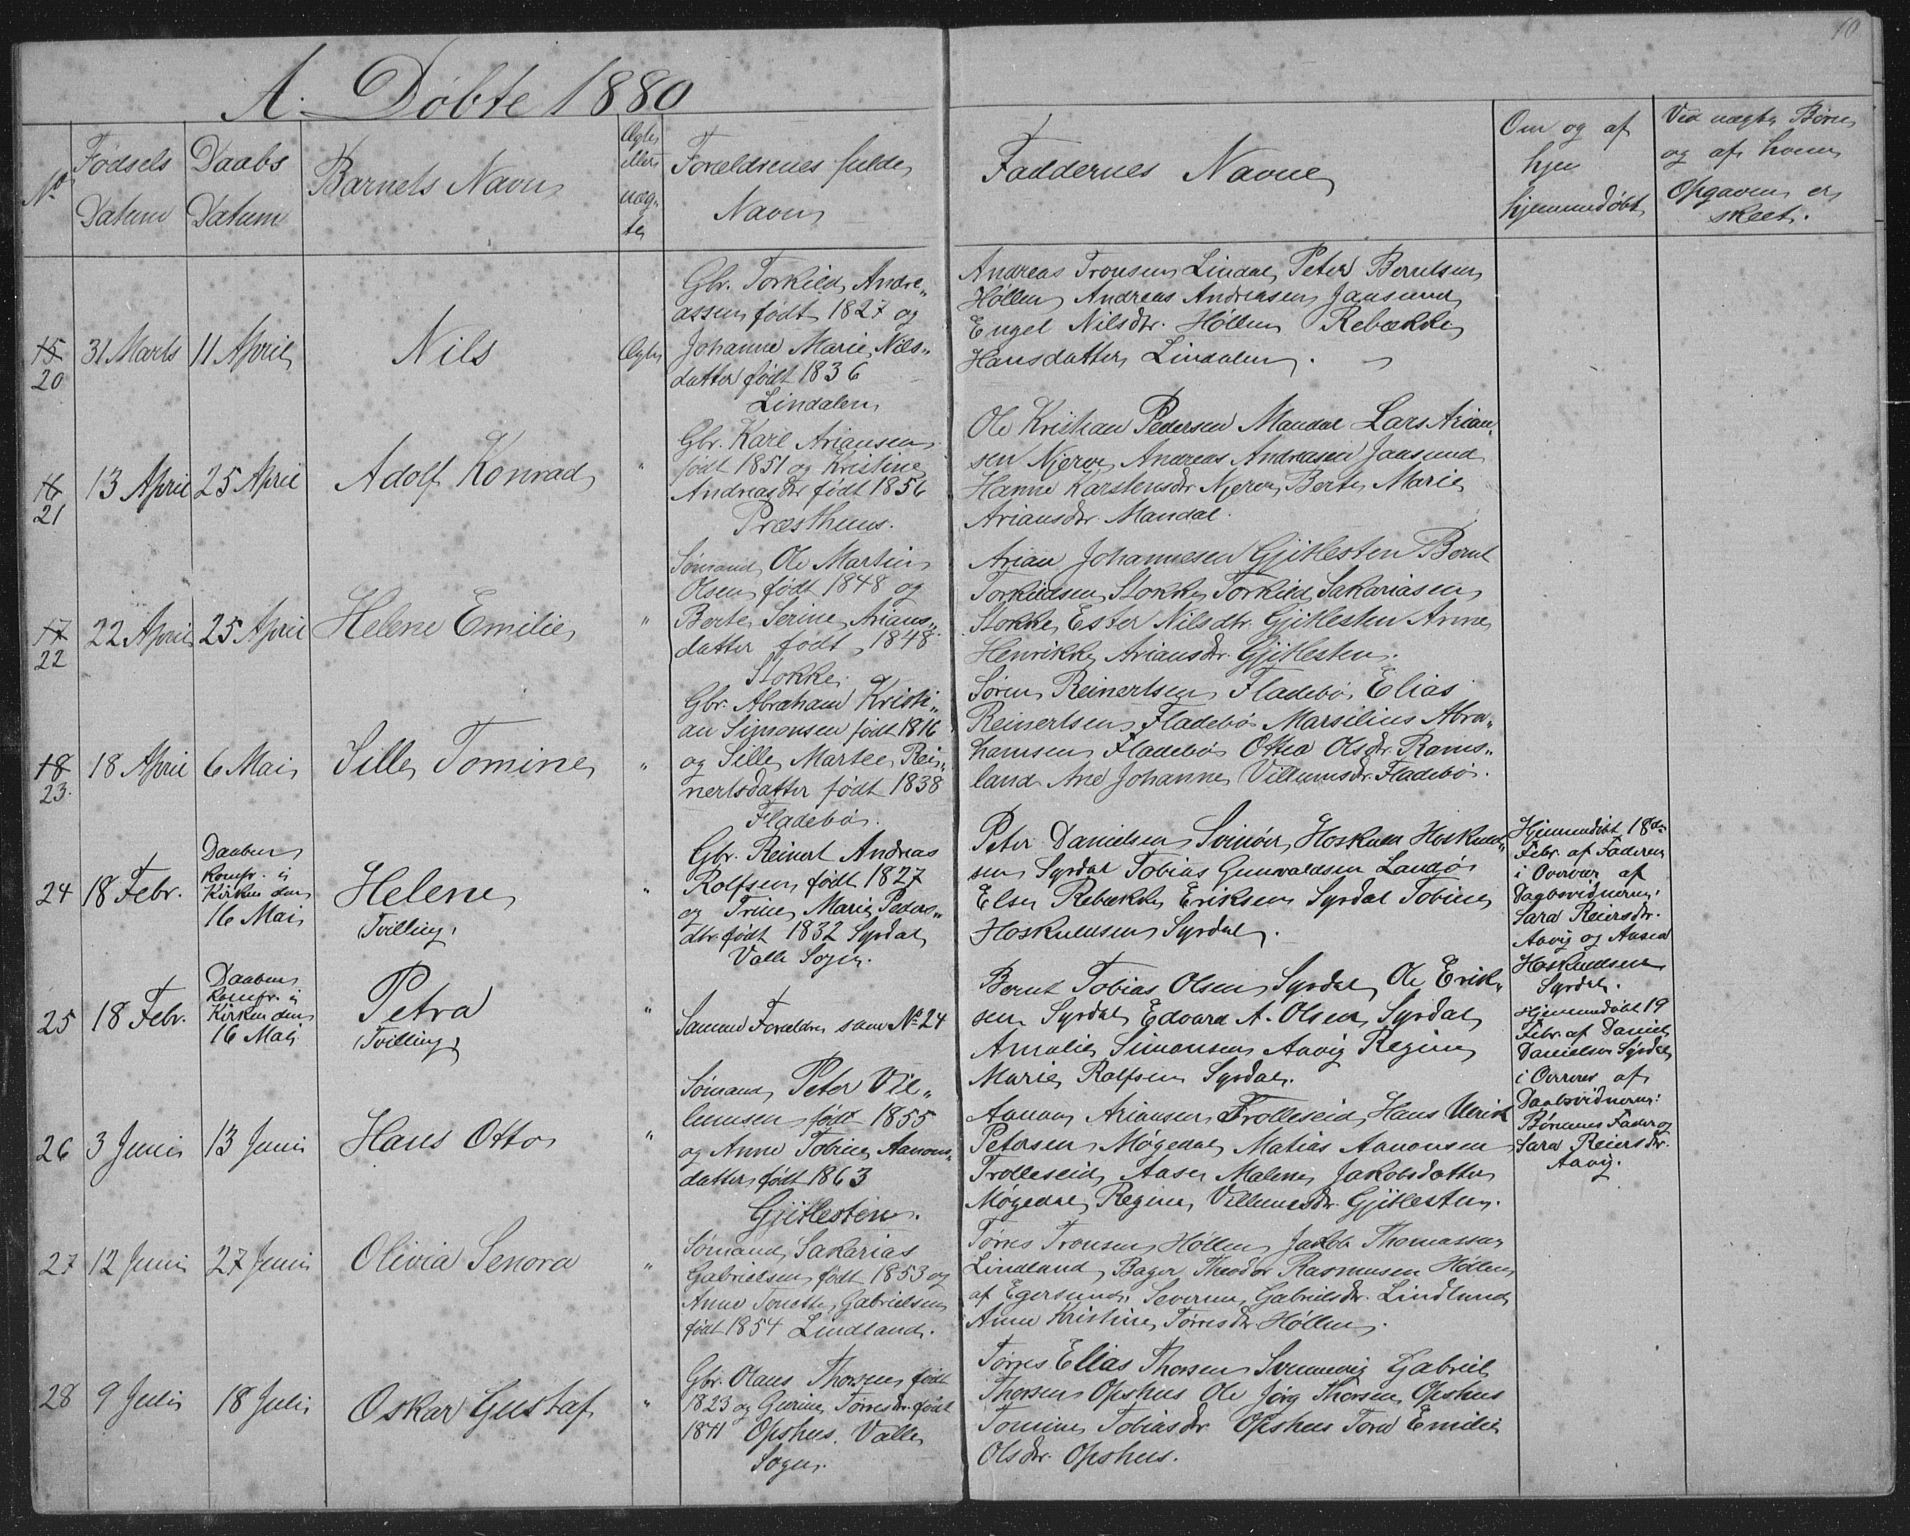 10
A. Döbte 1880
No
Fødsels Datum
Daabs Datum
Barnets Navn
Ægte eller uæg-te
Forældrenes fulde Navn
Faddernes Navne
Om og af hjemmedøbt
Ved uægte Børn og af hvem Opgaven er skeet.
15 20
31 Marts
11 April
Nils
Ægte
Gbr. Torkild Andre-
assen født 1827 og
Johanne Marie Nils-
datter født 1836
Lindalen
Andreas Tronsen Lindal, Peter Berntsen
Höllen Andreas Andreasen Jaasund
Engel Nilsdtr. Höllen Rebække
Hansdatter Lindalen.
16 21
13 April
25 April
Adolf Konrad
"
Gbr. Karl Ariansen
født 1851 og Kristine
Andreasdtr født 1856
Præsthuus.
Ole Kristian Pedersen Mandal Lars Arian-
sen Njerve Andreas Andreasen Jaasund
Hanne Karstensdtr Njerve Berte Marie
Ariansdtr. Mandal.
17 22
22 April
25 April
Helene Emilie
"
Sömand Ole Martin
Olsen født 1848 og
Berte Serine Arians-
datter født 1848
Stokke.
Arian Johannesen Gjitlesten Bernt
Torkildsen Stokke Torkild Sakariasen
Stokke Ester Nilsdtr. Gjitlesten Anne
Henrikke Ariansdtr. Gjitlesten.
18 23.
18 April
6 Mai
Sille Tomine
"
Gbr. Abraham Kristi-
an Simonsen født 1816
og Sille Martee Rei-
nertsdatter født 1838
Fladebö.
Sören Reinertsen Fladebö Elias
Reinertsen Fladebö Marsilius Abra-
hamsen Fladebö Ottea Olsdtr. Rams-
land Ane Johanne Villumsdtr. Fladebö.
24
18 Febr.
Daaben
Konfr. i
Kirken den
16 Mai
Helene
(Tvilling)
"
Gbr. Reinert Andreas
Rolfsen født 1827
og Trine Marie Peders-
dtr. født 1832 Syrdal
Valle Sogn.
Peter Danielsen Svinör, Hoskuld Hoskuld-
sen Syrdal Tobias Gunvaldsen Landö
Elen Rebække Eriksen Syrdal Tobine
Hoskuldsen Syrdal.
Hjemmedöbt 18de
Febr. af Faderen
i Overvær af
Daabsvidnerne:
Sara Reiersdtr.
Aavig og Aasea
Hoskuldsen
Syrdal.
25
18 Febr.
Daaben
Konfr. i
Kirken den
16 Mai
Petra
(Tvilling)
"
Samme Forældre som No 24
Bernt Tobias Olsen Syrdal, Ole Erik-
sen Syrdal Edvard A. Olsen Syrdal
Amalie Simonsen Aavig Regine
Marie Rolfsen Syrdal.
Hjemmedöbt 19
Febr. af Daniel
Danielsen Syrdal
i Overvær af
Daabsvidnerne:
Börnenes Fader og
Sara Reiersdtr.
Aavig.
26
3 Juni
13 Juni
Hans Otto
"
Sömand Peter Vil-
lumsen født 1855
og Anne Tobine Aanons-
datter født 1863
Gjitlesten.
Aanon Ariansen Trolleseid, Hans Ulrich
Petersen Møgedal Matias Aanonsen
Trolleseid, Aase Malene Jakobsdatter
Møgedal Regine Villumsdtr. Gjitlesten.
27
12 Juni
27 Juni
Olivia Senora
"
Sömand Sakarias
Gabrielsen født 1853 og
Anne Tonette Gabrielsen
født 1854 Lindland.
Tørres Tronsen Höllen Jakob Thomassen
Lindland Bager Theodor Rasmusen Höllen
af Egersund Severine Gabrielsdtr. Lindland
Anne Kristine Tørresdtr Höllen.
28
9 Juli
18 Juli
Oskar Gustaf
"
Gbr. Olaus Thorsen født
1823 og Gurine Tørresdtr. født
1841 Opshus. Valle
Sogn.
Tørres Elias Thorsen Svennevig Gabriel
Thorsen Opshus Ole Jörg Thorsen Opshus
Tomine Tobiasdtr Opshus Tora Emilie
Olsdtr. Opshus.